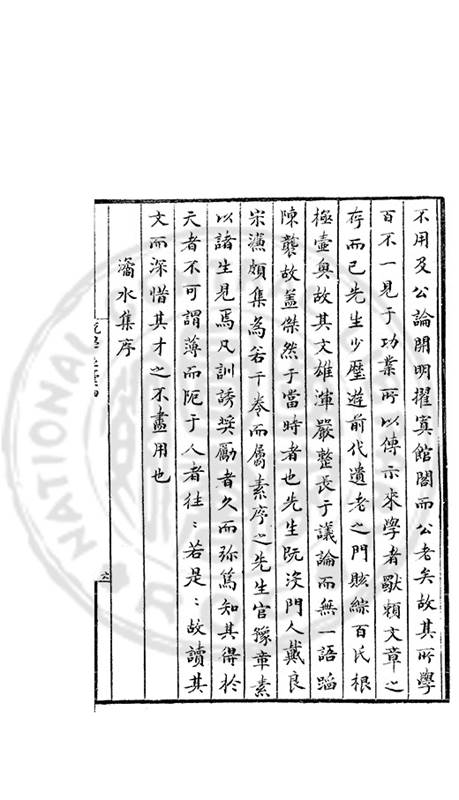 不用及公論開明擢寘館閣而公老矣故其所學
百不一見于功業所以傳示來學者獨賴文章之
存而已先生少歷遊前代遺老之門賅綜百氏根
極壼奧故其文雄渾嚴整長于議論而無一語蹈
陳襲故蓋傑然于當時者也先生既沒門人戴良
宋濂頗集為若干卷而屬素序之先生官豫章素
以諸生見焉凡訓誘奬勵者久而弥篤知其得於
天者不可謂薄而阨于人者往〻若是〻故讀其
文而深惜其才之不盡用也
灊水集序
NATIONAL